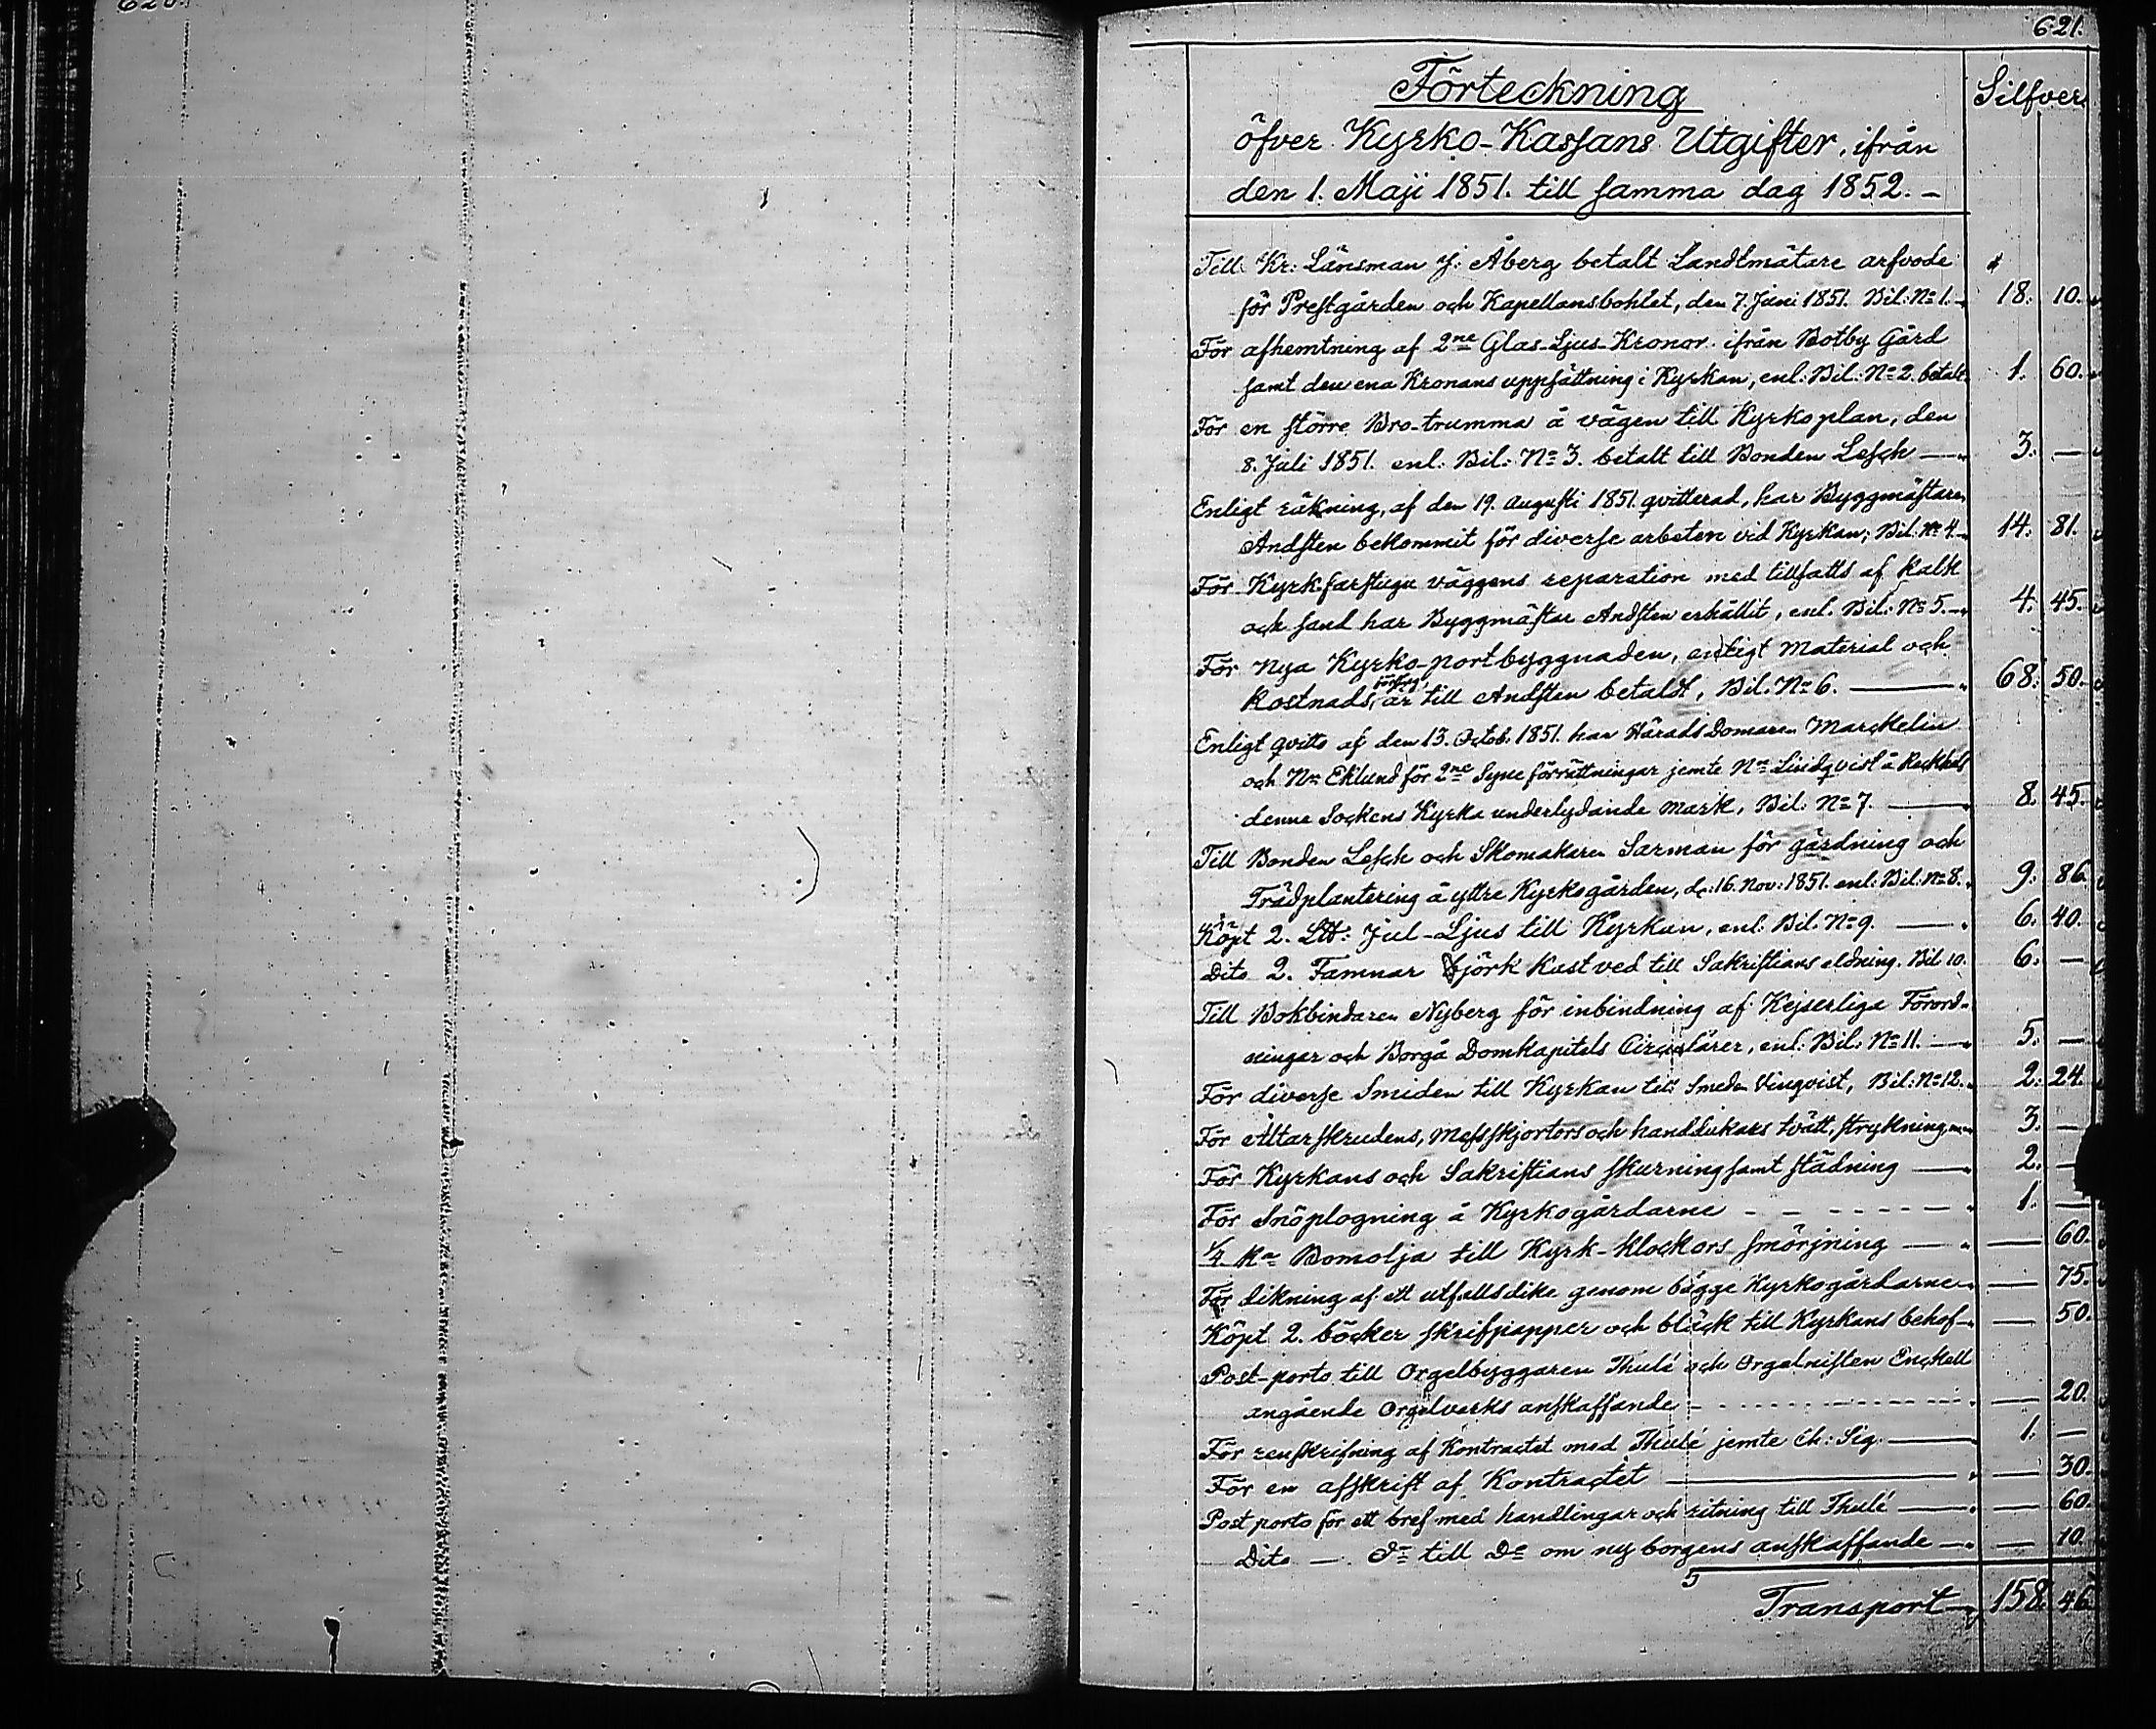 620.
621.
Förteckning
Silfver
öfver Kyrko-Kassans Utgifter, ifrån
den 1. Maji 1851. till samma dag 1852. -
Till Kr: Länsman J: Åberg betalt Landtmätare arfvode
för Prestgården och Kapellansbohlet, den 7. Juni 1851. Bil: No 1. 18. 10.
För afhemtning af 2ne Glas-Ljus-Kronor ifrån Botby Gård
samt den ena Kronans uppsättning i Kyrkan, enl: Bil: No 2. betalt 1. 60.
För en större Bro-trumma å vägen till Kyrkoplan, den
8. Juli 1851. enl: Bil: No 3. betalt till Bonden Lesch — 3. —
Enligt räkning, af den 19. Augusti 1851. qvitterad, har Byggmästaren
Andsten bekommit för diverse arbeten vid Kyrkan; Bil: No 4. 14. 81.
För Kyrk farstugu väggens reparation med tillsatts af kalk
och sand har Byggmästar Andsten erhållit, enl. Bil: No 5. 4. 45.
För Nya Kyrko-portbyggnaden, enligt Material och
Kostnads förslag, är till Andsten betaldt, Bil. No 6. — 68. 50.
Enligt qvitto af den 13. Octob. 1851. har HäradsDomaren Marckelin
och Nn Eklund för 2ne Syneförrättningar jemte Nn Lindqvist å
denne Sockens Kyrka underlydande mark, Bil: No 7. — 8. 45.
Till Bonden Lesch och Skomakaren Sarman för gärdning och
Trädplantering å yttre Kyrkogården, d: 16. Nov: 1851. enl: Bil: No 8. 9. 86.
Köpt 2. Ltt: Jul-Ljus till Kyrkan, enl: Bil. No 9. — 6. 40.
Dito 2. Famnar björk Kastved till Sakristians eldning. Bil 10. 6. —
Till Bokbindaren Nyberg för inbindning af Kejserliga Förord-
ningar och Borgå Domkapitels Circulärer, enl: Bil: No 11. — 5. —
För diverse Smiden till Kyrkan till Smeden Vinqvist, Bil: No 12. 2. 24.
För Altarskrudens, Messskjortors och handdukars tvätt, strykning 3. —
För Kyrkans och Sakristians skurning samt städning — 2. —
För Snöplogning å Kyrkogårdarne - - - - 1. —
1/4 Kna Bomolja till Kyrk-klockors smörjning — — 60.
För dikning af ett utfallsdike genom bägge Kyrkogårdarne — 75.
Köpt 2. böcker skrifpapper och bläck till Kyrkans behof — 50.
Post-porto till Orgelbyggaren Thulé och Orgelnisten Enckell
angående Orgelverks anskaffande - - - - — 20.
För renskrifning af Kontractet med Thulé jemte Ch: Sig. — 1. —
För en afskrift af Kontractet — — 30.
Post porto för ett bref med handlingar och ritning till Thulé — — 60.
Dito — Do till Do om ny borgens anskaffande — — 10.
Transport 158. 46.